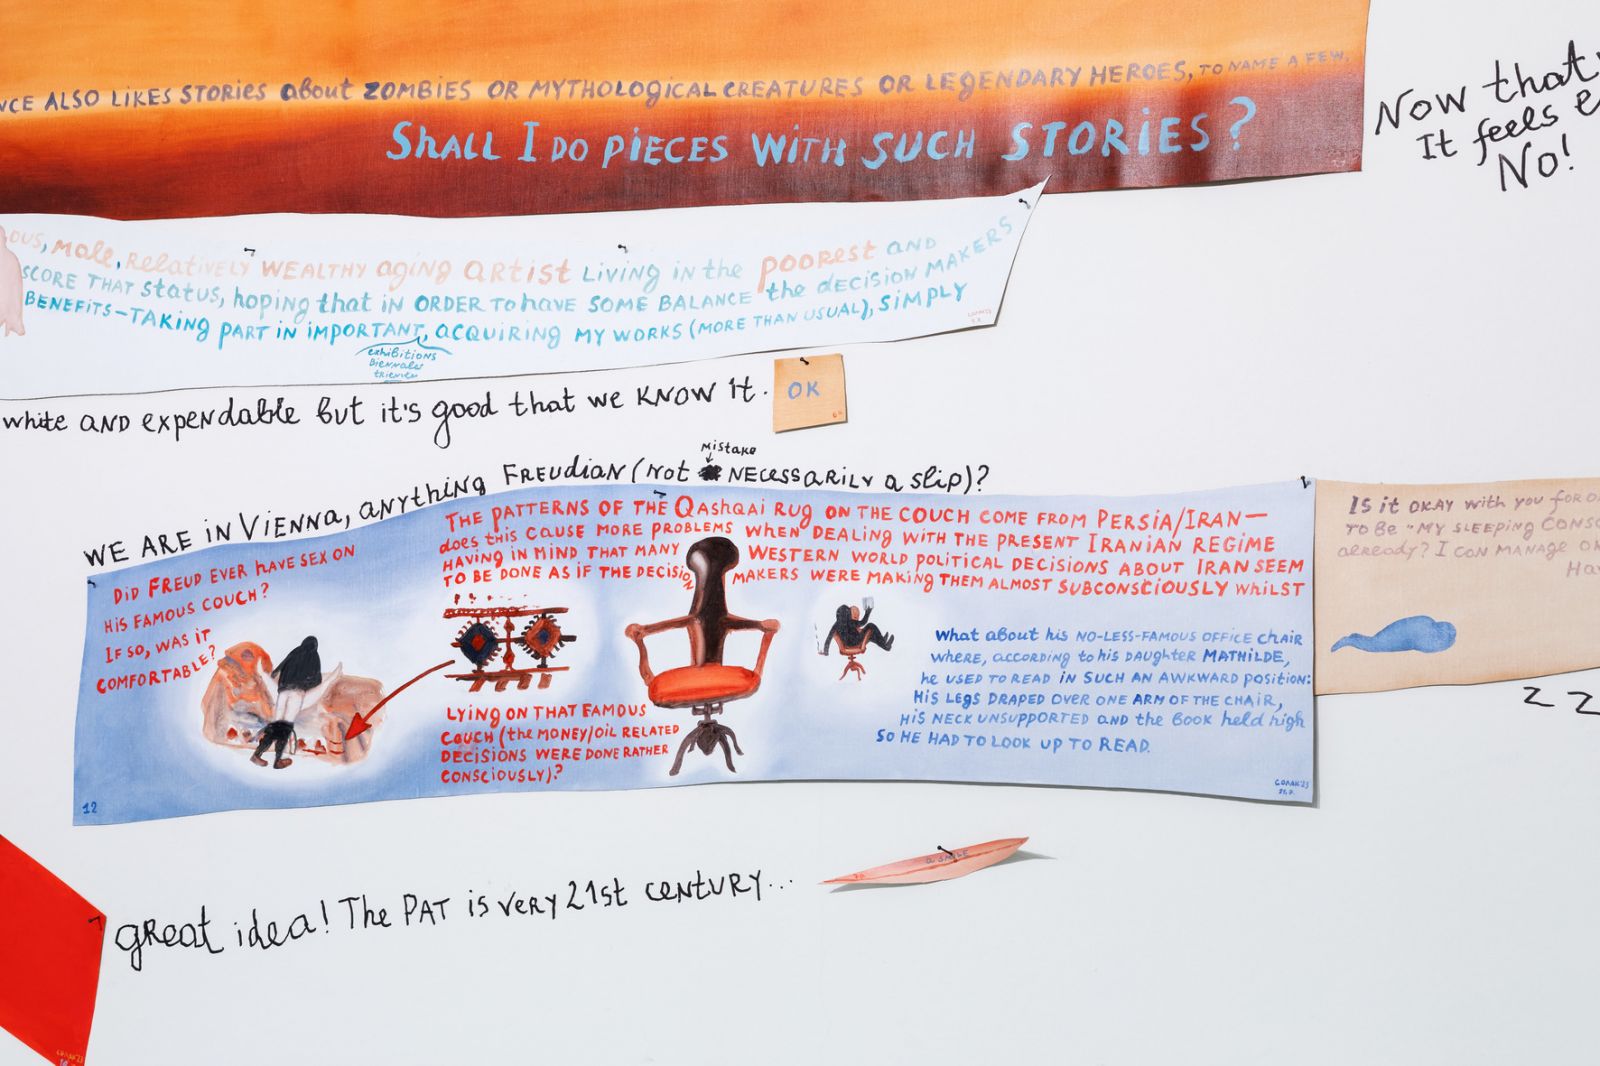 NCE ALSO LIKES STORIES about ZOMBIES OR MYTHOLOGICAL CREATURES OR LEGENDARY HEROES, TO NAME A FEW.
SHALL I DO PIECES WITH SUCH STORIES?
Now that
It feels
No!
OUS, MALE, RELATIVELY WEALTHY AGING ARTIST LIVING IN the POOREST AND
SCORE THAT STATUS, hoping that IN ORDER TO have SOME BALANCE the DECISION MAKERS
BENEFITS—TAKING PART IN IMPORTANT, ACQUIRING MY WORKS (MORE THAN USUAL), SIMPLY
exhibitions
Biennales
white AND expendable but it's good that we KNOW it.
OK
Mistake
WE ARE IN VIENNA, ANYTHING FREUDIAN (Not NECESSARILY a slip)?
DID FREUD EVER HAVE SEX ON
HIS FAMOUS COUCH?
IF SO, WAS IT
COMFORTABLE?
12
THE PATTERNS OF THE QASHQAI RUG ON THE COUCH COME FROM PERSIA/IRAN—
does THIS CAUSE MORE PROBLEMS WHEN DEALING WITH THE PRESENT IRANIAN REGIME
HAVING IN MIND THAT MANY WESTERN WORLD POLITICAL DECISIONS ABOUT IRAN SEEM
TO BE DONE AS IF THE DECISION MAKERS WERE MAKING THEM ALMOST SUBCONSCIOUSLY WHILST
LYING ON THAT FAMOUS
COUCH (the MONEY/OIL RELATED
DECISIONS WERE DONE RATHER
CONSCIOUSLY)?
What about his NO-LESS-FAMOUS OFFICE CHAIR
where, ACCORDING to his DAUGHTER MATHILDE,
he USED TO READ IN SUCH AN AWKWARD POSITION:
HIS LEGS DRAPED OVER ONE ARM OF THE CHAIR,
HIS NECK UNSUPPORTED AND the BOOK held high
SO HE HAD TO LOOK UP TO READ.
IS it OKAY with you for
TO BE "MY SLEEPING
already? I CAN MANAGE
Z Z
a SMILE
great idea! The PAT is very 21st century...